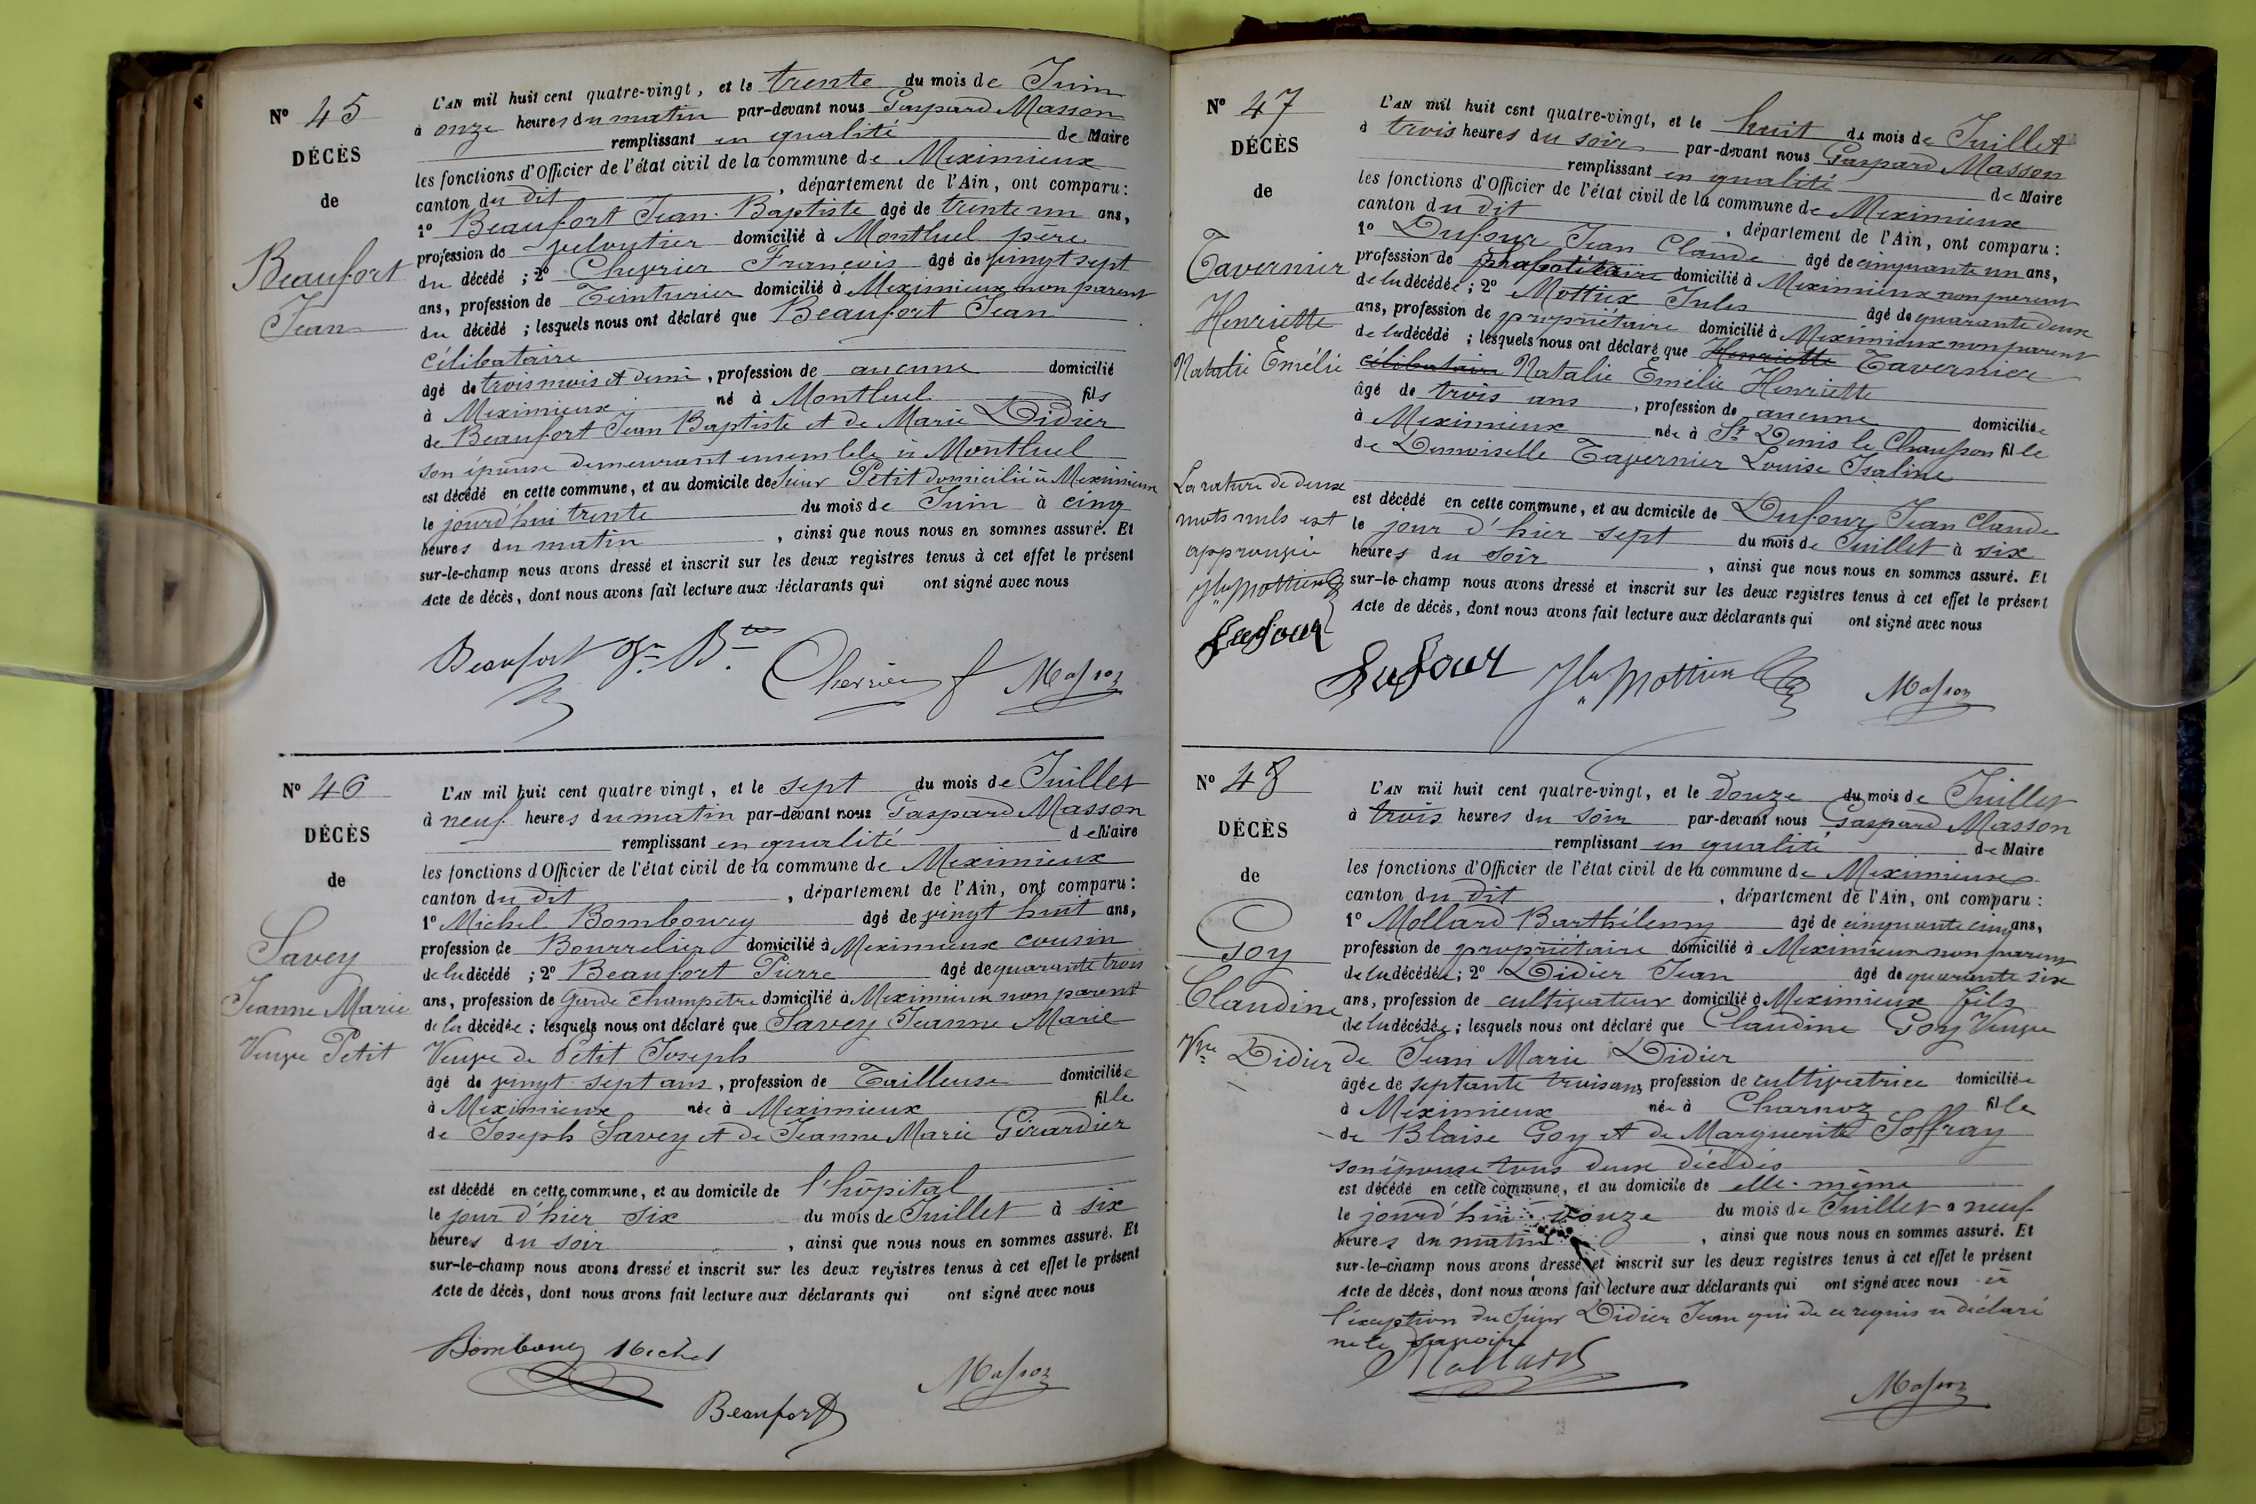 N° 45
DÉCÈS
de
Beaufort
Jean
L'AN mil huit cent quatre-vingt, et le trente du mois de Juin
à onze heures du matin par-devant nous Gaspard Masson
remplissant en qualité de Maire
les fonctions d'Officier de l'état civil de la commune de Meximieux
canton du dit, département de l'Ain, ont comparu:
1° Beaufort Jean-Baptiste âgé de trente un ans,
profession de peloutier domicilié à Montluel père
du décédé ; 2° Chevrier François âgé de vingt sept
ans, profession de Teinturier domicilié à Meximieux non parent
du décédé ; lesquels nous ont déclaré que Beaufort Jean
célibataire
âgé de trois mois et demi, profession de aucune domicilié
à Meximieux né à Montluel fils
de Beaufort Jean Baptiste et de Marie Didier
son épouse demeurant ensemble à Montluel
est décédé en cette commune, et au domicile de Sieur Petit domicilié à Meximieux
le jourd'hui trente du mois de Juin à cinq
heures du matin, ainsi que nous nous en sommes assuré. Et
sur-le-champ nous avons dressé et inscrit sur les deux registres tenus à cet effet le présent
Acte de décès, dont nous avons fait lecture aux déclarants qui ont signé avec nous
Beaufort Jn Bte Chevrier f Masson
N° 46
DÉCÈS
de
Savey
Jeanne Marie
Veuve Petit
L'AN mil huit cent quatre vingt, et le sept du mois de Juillet
à neuf heures du matin par-devant nous Gaspard Masson
remplissant en qualité de Maire
les fonctions d'Officier de l'état civil de la commune de Meximieux
canton du dit, département de l'Ain, ont comparu:
1° Michel Bombourg âgé de vingt huit ans,
profession de Bourrelier domicilié à Meximieux cousin
de la décédé ; 2° Beaufort Pierre âgé de quarante trois
ans, profession de Garde champêtre domicilié à Meximieux non parent
de la décédée ; lesquels nous ont déclaré que Savey Jeanne Marie
Veuve de Petit Joseph
âgé de vingt sept ans, profession de Tailleuse domiciliée
à Meximieux née à Meximieux fille
de Joseph Savey et de Jeanne Marie Girardier
est décédé en cette commune, et au domicile de l'hôpital
le jour d'hier six du mois de Juillet à six
heures du soir, ainsi que nous nous en sommes assuré. Et
sur-le-champ nous avons dressé et inscrit sur les deux registres tenus à cet effet le présent
Acte de décès, dont nous avons fait lecture aux déclarants qui ont signé avec nous
Bombourg Michel Masson
Beaufort
N° 47
DÉCÈS
de
Tavernier
Henriette
Natalie Emélie
La rature de deux
mots nuls est
approuvée
Jles Mottieux
Dufour
L'AN mil huit cent quatre-vingt, et le huit du mois de Juillet
à trois heures du soir par-devant nous Gaspard Masson
remplissant en qualité de Maire
les fonctions d'Officier de l'état civil de la commune de Meximieux
canton du dit, département de l'Ain, ont comparu :
1° Dufour Jean Claude âgé de cinquante un ans,
profession de propriétaire domicilié à Meximieux non parent
de la décédée ; 2° Mottieux Jules âgé de quarante deux
ans, profession de propriétaire domicilié à Meximieux non parent
de la décédé ; lesquels nous ont déclaré que Henriette Tavernier
célibataire Natalie Emélie Henriette
âgé de trois ans, profession de aucune domiciliée
à Meximieux née à St Denis le Chausson fille
de Demoiselle Tavernier Louise Isaline
est décédé en cette commune, et au domicile de Dufour Jean Claude
le jour d'hier sept du mois de Juillet à six
heures du soir, ainsi que nous nous en sommes assuré. Et
sur-le-champ nous avons dressé et inscrit sur les deux registres tenus à cet effet le présent
Acte de décès, dont nous avons fait lecture aux déclarants qui ont signé avec nous
Dufour Jles Mottieux Masson
N° 48
DÉCÈS
de
Goy
Claudine
Vve Didier
L'AN mil huit cent quatre-vingt, et le douze du mois de Juillet
à trois heures du soir par-devant nous Gaspard Masson
remplissant en qualité de Maire
les fonctions d'Officier de l'état civil de la commune de Meximieux
canton du dit, département de l'Ain, ont comparu :
1° Mollard Barthélemy âgé de cinquante cinq ans,
profession de propriétaire domicilié à Meximieux non parent
de la décédée ; 2° Didier Jean âgé de quarante six
ans, profession de cultivateur domicilié à Meximieux fils
de la décédée ; lesquels nous ont déclaré que Claudine Goy Veuve
de Jean Marie Didier
âgée de septante trois ans profession de cultivatrice domiciliée
à Meximieux née à Charnoz fille
de Blaise Goy et de Marguerite Joffray
son épouse tous deux décédés
est décédé en cette commune, et au domicile de elle-même
le jourd'hui douze du mois de Juillet à neuf
heures du matin, ainsi que nous nous en sommes assuré. Et
sur-le-champ nous avons dressé et inscrit sur les deux registres tenus à cet effet le présent
Acte de décès, dont nous avons fait lecture aux déclarants qui ont signé avec nous à
l'exception du Sieur Didier Jean qui de ce requis a déclaré
ne le savoir
Mollard
Masson